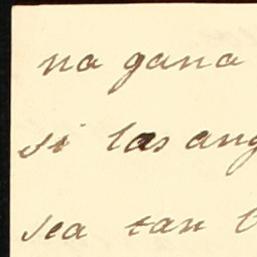 na gana
si las ang
sea tan